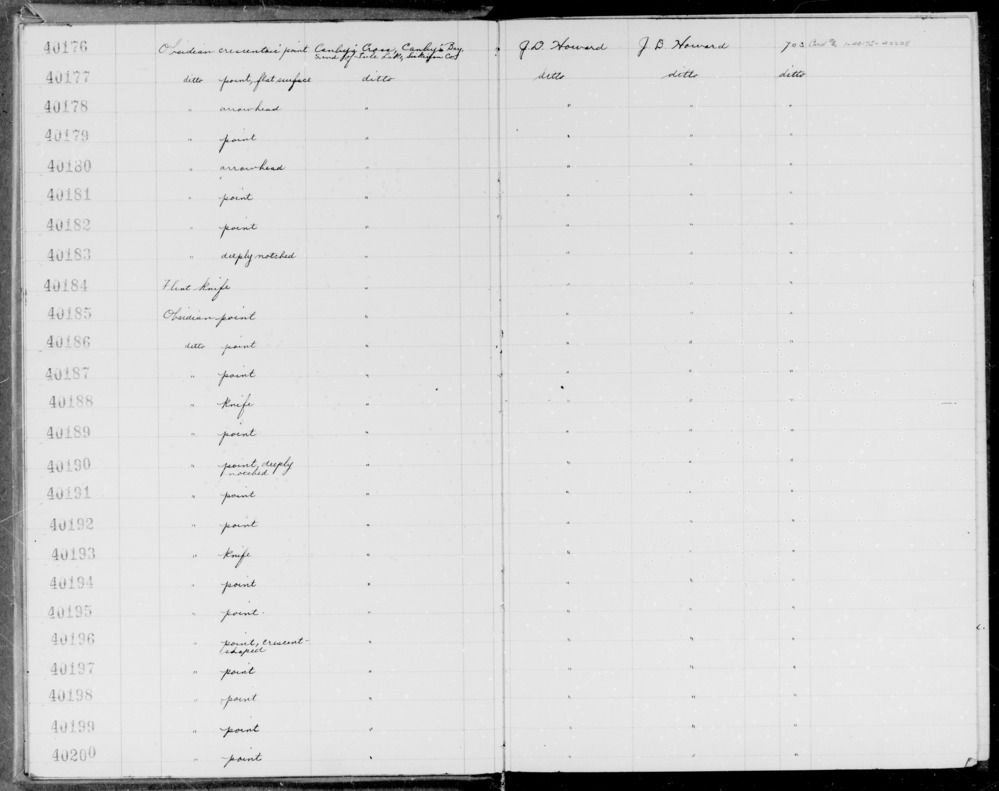 40176 Obsidian crescentric point Canby's Cross, Canby's Bay, J.D. Howard J.D. Howard 703
end of Tule Lake, Siskiyou Co.
40177 ditto point, flat surface ditto ditto ditto ditto
40178 " arrowhead " " " "
40179 " point " " " "
40180 " arrowhead " " " "
40181 " point " " " "
40182 " point " " " "
40183 " deeply notched " " " "
40184 Flint knife " " " "
40185 Obsidian point " " " "
40186 ditto point " " " "
40187 " point " " " "
40188 " knife " " " "
40189 " point " " " "
40190 " point, deeply " " " "
notched
40191 " point " " " "
40192 " point " " " "
40193 " knife " " " "
40194 " point " " " "
40195 " point " " " "
40196 " point, crescent- " " " "
shaped
40197 " point " " " "
40198 " point " " " "
40199 " point " " " "
40200 " point " " " "